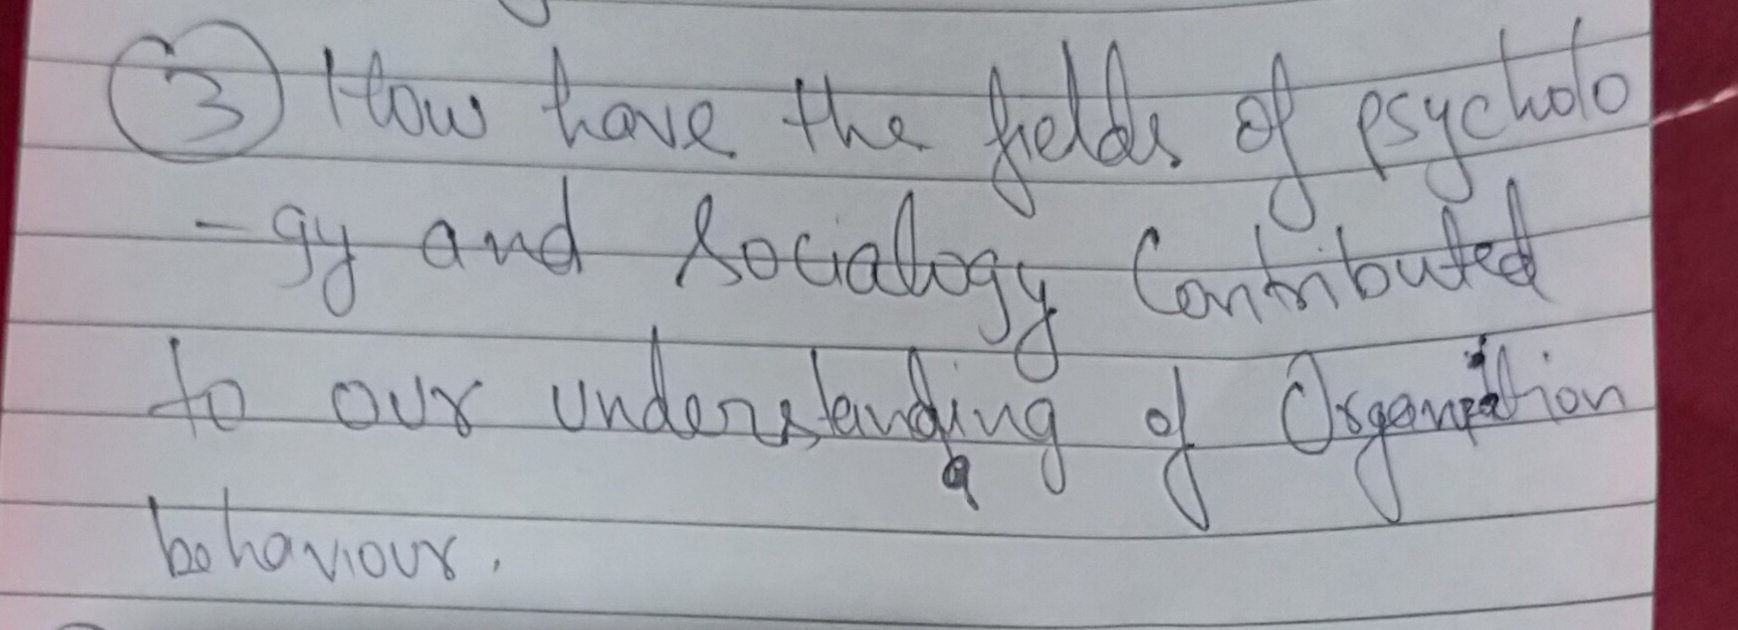 3 How have the fields of psycholo
-gy and Socialogy Contributed
to our understanding of Organization
behaviour.